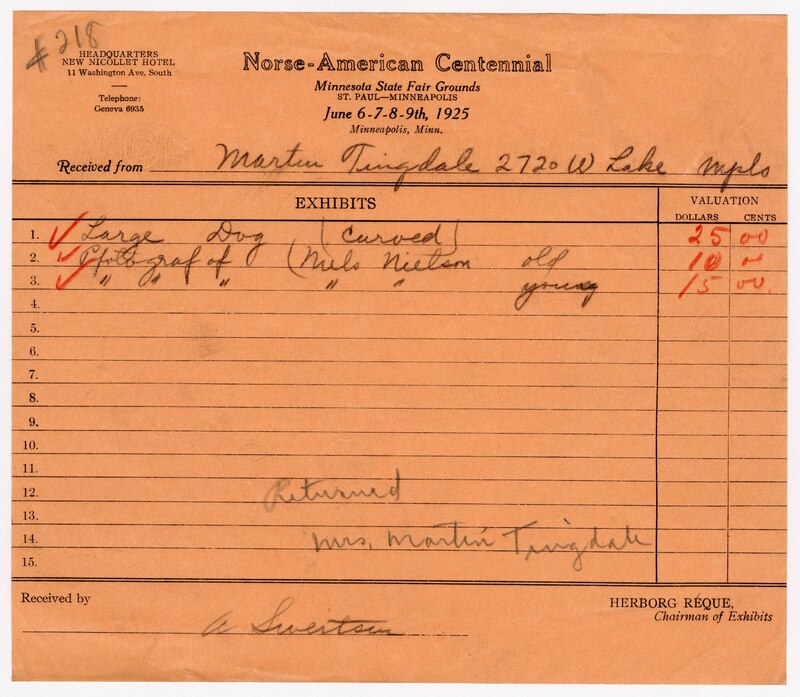 #218
HEADQUARTERS
NEW NICOLLET HOTEL
11 Washington Ave. South
Telephone:
Geneva 6935
Norse-American Centennial
Minnesota State Fair Grounds
ST. PAUL—MINNEAPOLIS
June 6-7-8-9th, 1925
Minneapolis, Minn.
Received from Martin Tingdale 2720 W Lake Mpls
EXHIBITS VALUATION
DOLLARS CENTS
1. Large Dog (Carved) 25 00
2. Pfotograf of (Niels Nielson old 10 00
3. " " " " " young 15 00
4.
5.
6.
7.
8.
9.
10.
11.
12. Returned
13.
14. Mrs. Martin Tingdale
15.
Received by A Swertsen
HERBORG REQUE,
Chairman of Exhibits